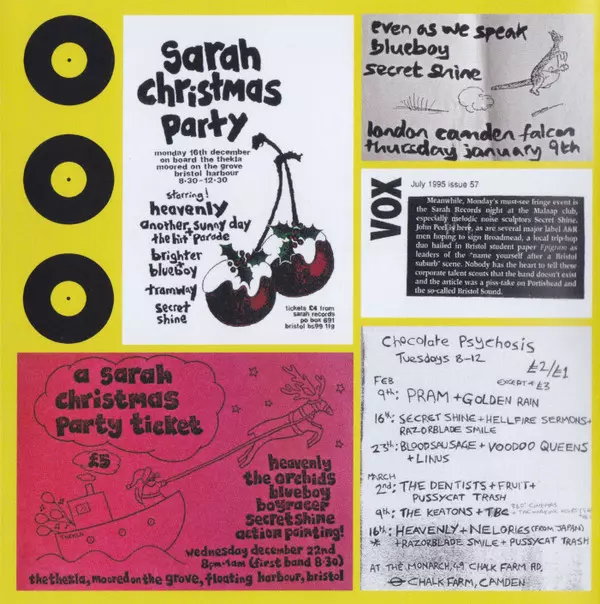 sarah
christmas
party
monday 16th december
on board the thekla
moored on the grove
bristol harbour
8·30-12·30
starring!
heavenly
another sunny day
the hit parade
brighter
blueboy
tramway
secret
shine
tickets £4 from
sarah records
po box 691
bristol bs99 1fg
even as we speak
blueboy
secret shine
london camden falcon
thursday january 9th
VOX
July 1995 issue 57
Meanwhile, Monday's must-see fringe event is
the Sarah Records night at the Malaap club,
especially melodic noise sculptors Secret Shine.
John Peel is here, as are several major label A&R
men hoping to sign Broadmead, a local trip-hop
duo hailed in Bristol student paper Epigram as
leaders of the "name yourself after a Bristol
suburb" scene. Nobody has the heart to tell these
corporate talent scouts that the band doesn't exist
and the article was a piss-take on Portishead and
the so-called Bristol Sound.
a sarah
christmas
party ticket
£5
THEKLA
heavenly
the orchids
blueboy
boyracer
secret shine
action painting!
wednesday december 22nd
8pm-1am (first band 8·30)
the thekla, moored on the grove, floating harbour, bristol
Chocolate Psychosis
Tuesdays 8-12
£2/£1
EXCEPT * £3
FEB
9th: PRAM + GOLDEN RAIN
16th: SECRET SHINE + HELLFIRE SERMONS +
RAZORBLADE SMILE
23rd: BLOODSAUSAGE + VOODOO QUEENS
+ LINUS
MARCH
2nd: THE DENTISTS + FRUIT +
PUSSYCAT TRASH
9th: THE KEATONS + TBC
16th: HEAVENLY + NELORIES (FROM JAPAN)
* + RAZORBLADE SMILE + PUSSYCAT TRASH
AT THE MONARCH, 49 CHALK FARM RD,
CHALK FARM, CAMDEN